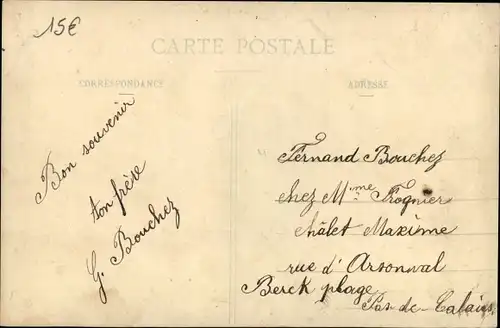 15€
CARTE POSTALE
CORRESPONDANCE
ADRESSE
Bon souvenir
ton frère
G. Bouchez
Fernand Bouchez
chez Mme Frognier
châlet Maxime
rue d'Arsonval
Berck plage
Pas-de-Calais